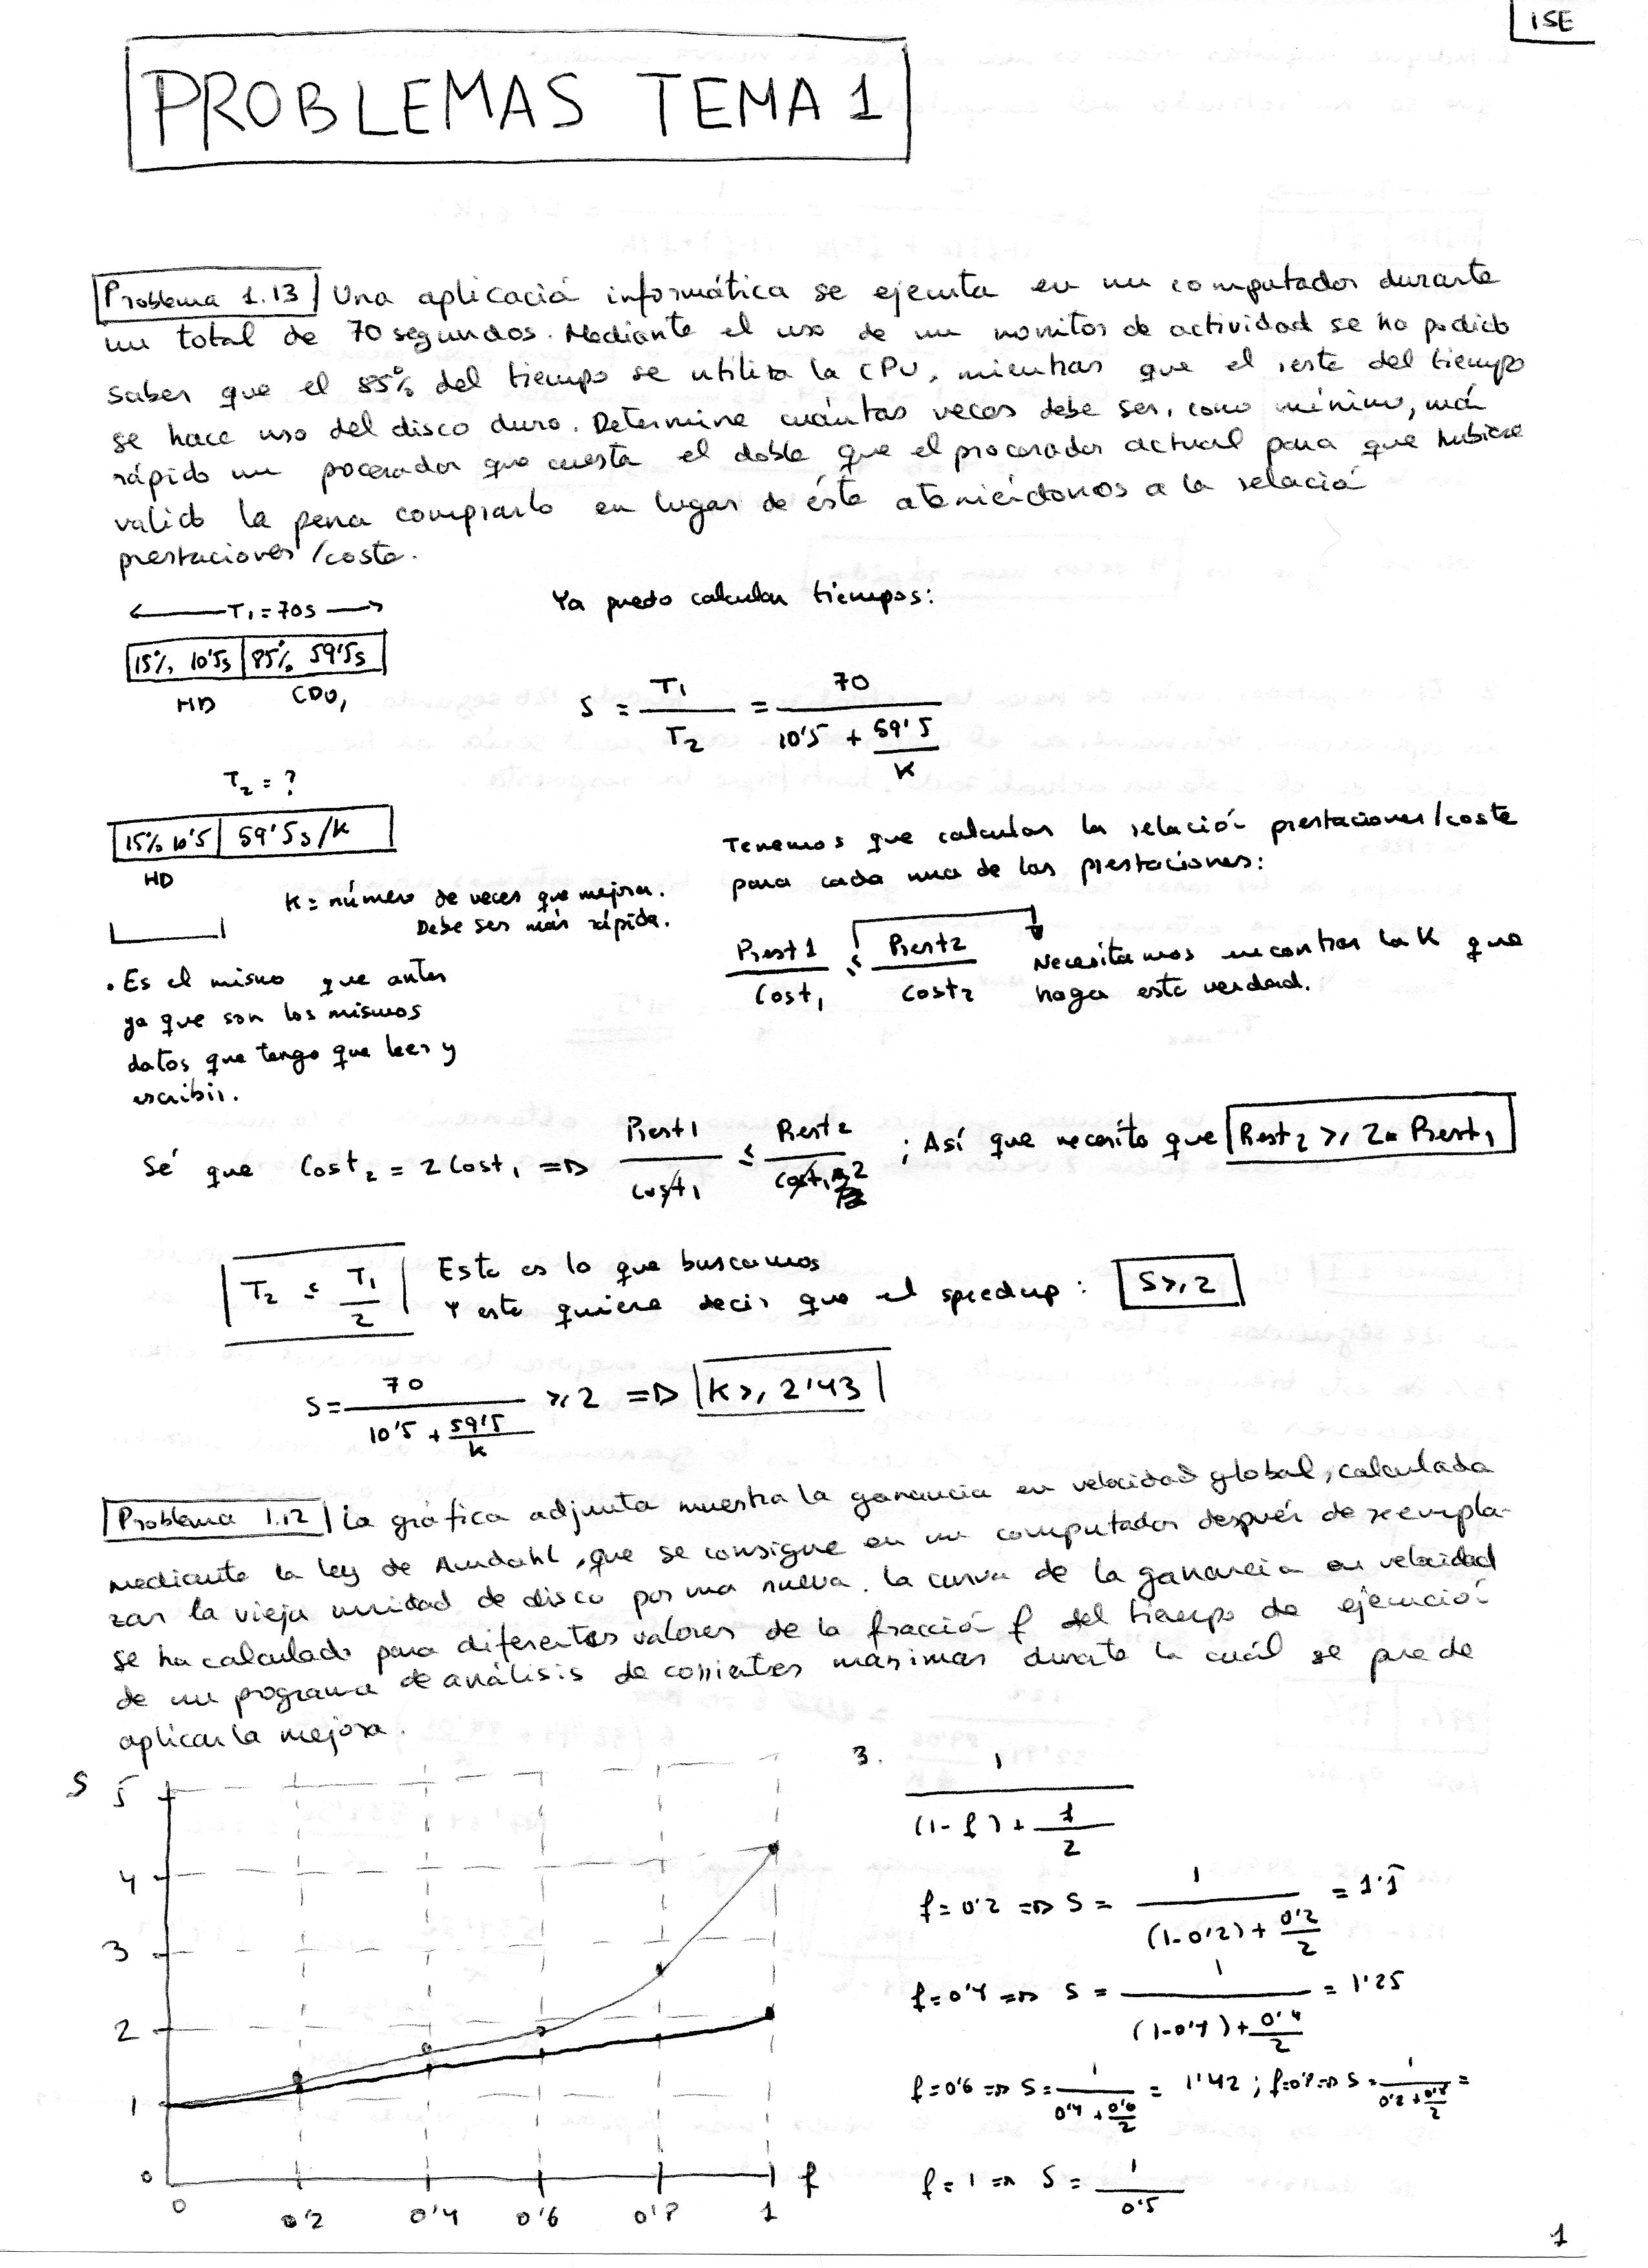 ISE
PROBLEMAS TEMA 1
Problema 1.13 Una aplicació informática se ejecuta en un computador durante
un total de 70 segundos. Mediante el uso de un monitor de actividad se ha podido
saber que el 85% del tiempo se utiliza la CPU, mientras que el resto del tiempo
se hace uso del disco duro. Determine cuántas veces debe ser, como mínimo, más
rápido un pocesador que cuesta el doble que el procesador actual para que hubiese
valido la pena comprarlo en lugar de éste ateniéndonos a la relació
prestaciones/coste.
T1 = 70s
15% 10'5s 85% 59'5s
HD CPU1
Ya puedo calcular tiempos:
S = T1 / T2 = 70 / (10'5 + 59'5/K)
T2 = ?
15% 10'5 59'5s/K
HD
K = número de veces que mejora.
Debe ser más rápida.
• Es el mismo que antes
ya que son los mismos
datos que tengo que leer y
escribir.
Tenemos que calcular la relación prestaciones/coste
para cada una de las prestaciones:
Prest1 / Cost1 ≤ Prest2 / Cost2 Necesitamos encontrar la K que
haga esto verdad.
Sé que Cost2 = 2 Cost1 => Prest1 / Cost1 ≤ Prest2 / Cost1 · 2 ; Así que necesito que Prest2 ≥ 2 · Prest1
T2 ≤ T1 / 2 Esto es lo que buscamos
Y esto quiere decir que el speedup: S ≥ 2
S = 70 / (10'5 + 59'5/K) ≥ 2 => K ≥ 2'43
Problema 1.12 La gráfica adjunta muestra la ganancia en velocidad global, calculada
mediante la ley de Amdahl, que se consigue en un computador después de reempla-
zar la vieja unidad de disco por una nueva. La curva de la ganancia en velocidad
se ha calculado para diferentes valores de la fracción f del tiempo de ejecució
de un programa de análisis de corrientes marinas durante la cuál se puede
aplicar la mejora.
S
5
4
3
2
1
0
0 0'2 0'4 0'6 0'8 1 f
3. 1 / ((1-f) + 1/2)
f = 0'2 => S = 1 / ((1-0'2) + 0'2/2) = 1'1
f = 0'4 => S = 1 / ((1-0'4) + 0'4/2) = 1'25
f = 0'6 => S = 1 / (0'4 + 0'6/2) = 1'42 ; f = 0'8 => S = 1 / (0'2 + 0'8/2) =
f = 1 => S = 1 / 0'5
1